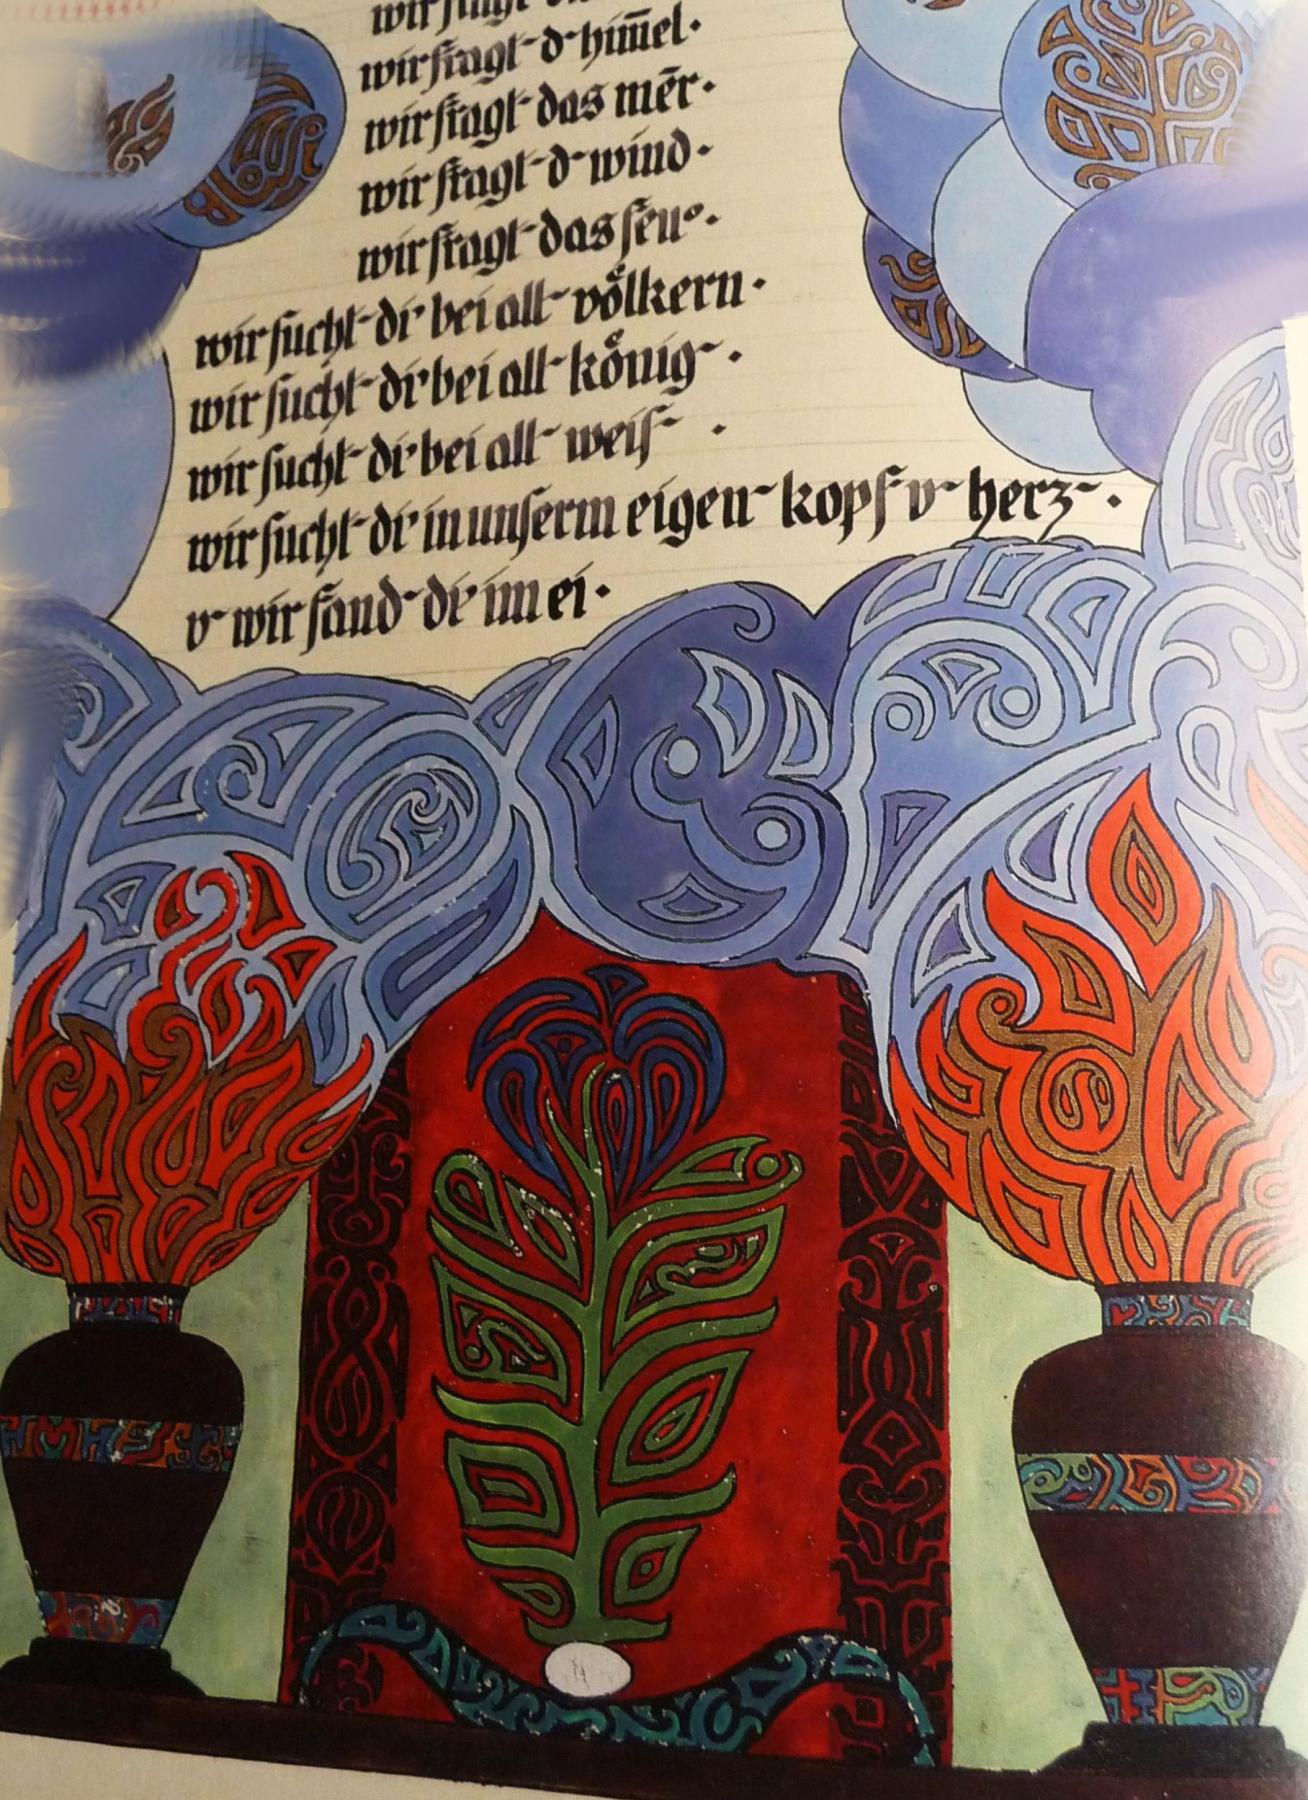 wir fragt
wir fragt d himel.
wir fragt das mēr.
wir fragt d wind.
wir fragt das feur.
wir sucht di bei all völkern.
wir sucht di bei all könig.
wir sucht di bei all weis .
wir sucht di in unserm eigen kopf v herz.
v wir fand di im ei.